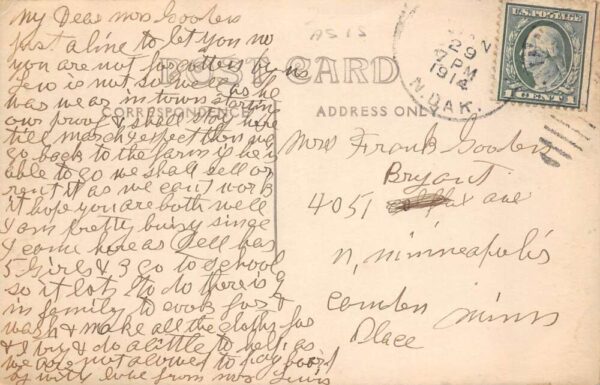 My Dear Mrs Goolers
just a line to let you no
you are not forgotten
Lew is not so well as he
was we ar in town
our prove & shall stay here
till march expect then we
go back to the farm if he is
able to go we shall sell or
rent it as we cant work
it hope you are both well
I am pretty buisy since
I come here as Dell has
5 Girls & 3 go to school
so it lots to do there is 9
in family to cook for &
wash & make all the cloths for
& I try & do a little to help as
we are not alowed to pay board
with love from Mrs Lewis
AS IS
POST CARD
CORRESPONDENCE
ADDRESS ONLY
29
7 PM
1914
N. DAK.
U.S. POSTAGE
1 CENT 1
Mrs Frank Goolers
Bryant
4051 ave
N, Minneapolis
Camden Minn
Place